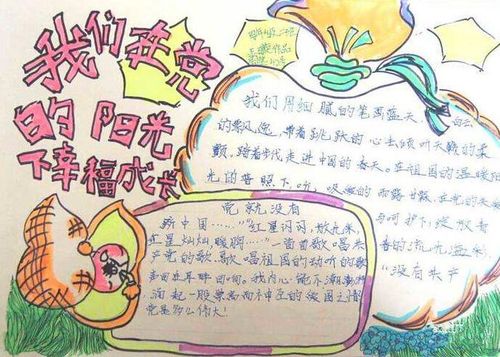 我们在党
的阳光
下幸福成长
作品
我们用细腻的笔画蓝天、白云
的飘逸，带着跳跃的心去倾听天籁的柔
颤，踏着步伐走进中国的春天。在祖国的温暖阳
光的普照下，吮吸
的雨露甘甜，在党的关爱
与呵护下，绽放着
春的流光溢彩，
"没有共产
党就没有
新中国……""红星闪闪，放光彩，
红星灿灿，暖
……"一首首歌唱共
产党的歌，歌唱祖国的动听的歌
声回在耳畔回响。我内心
潮澎湃
涌起一股
的爱国之情
党是多么伟大！